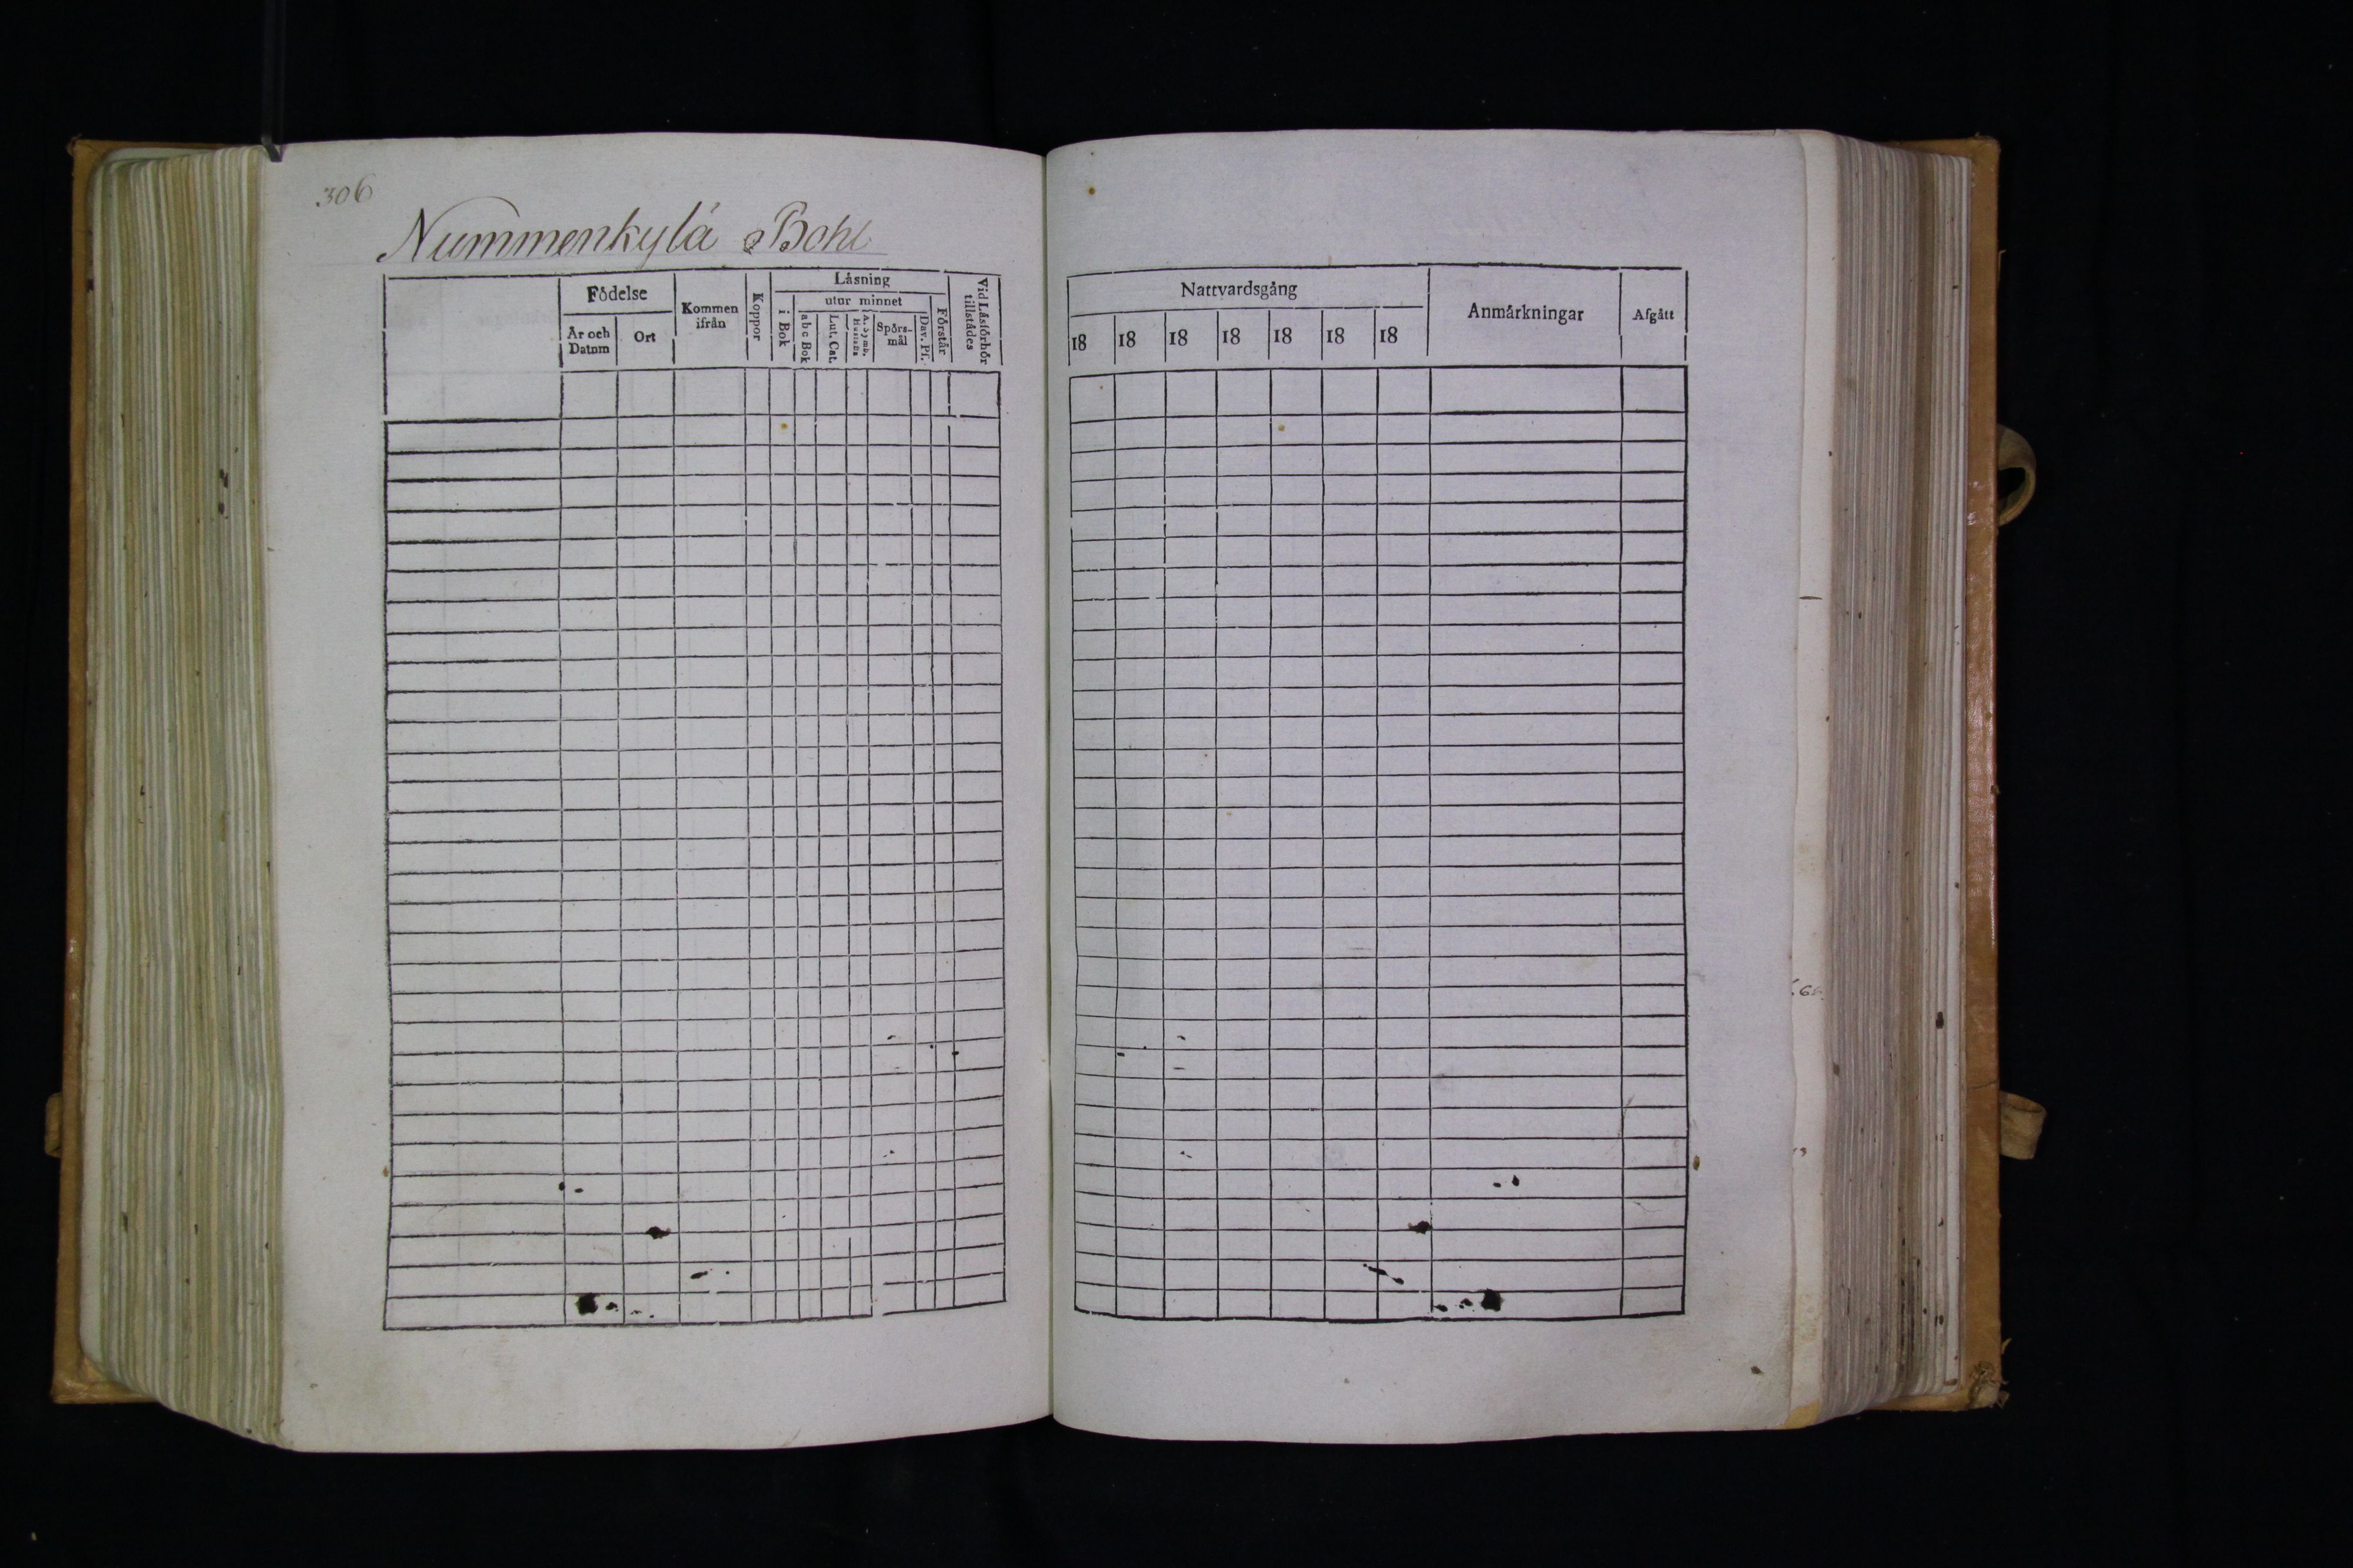 306
Nummenkylä Bohl
Födelse
Kommen ifrån
Koppor
Läsning
Vid Läsförhör tillstådes
utur minnet
År och Datum
Ort
i Bok
abc Bok
Lut. Cat.
A. Symb.
Spörsmål
Dav. Ps.
Förstår
Nattvardsgång
Anmärkningar
Afgått
18 18 18 18 18 18 18